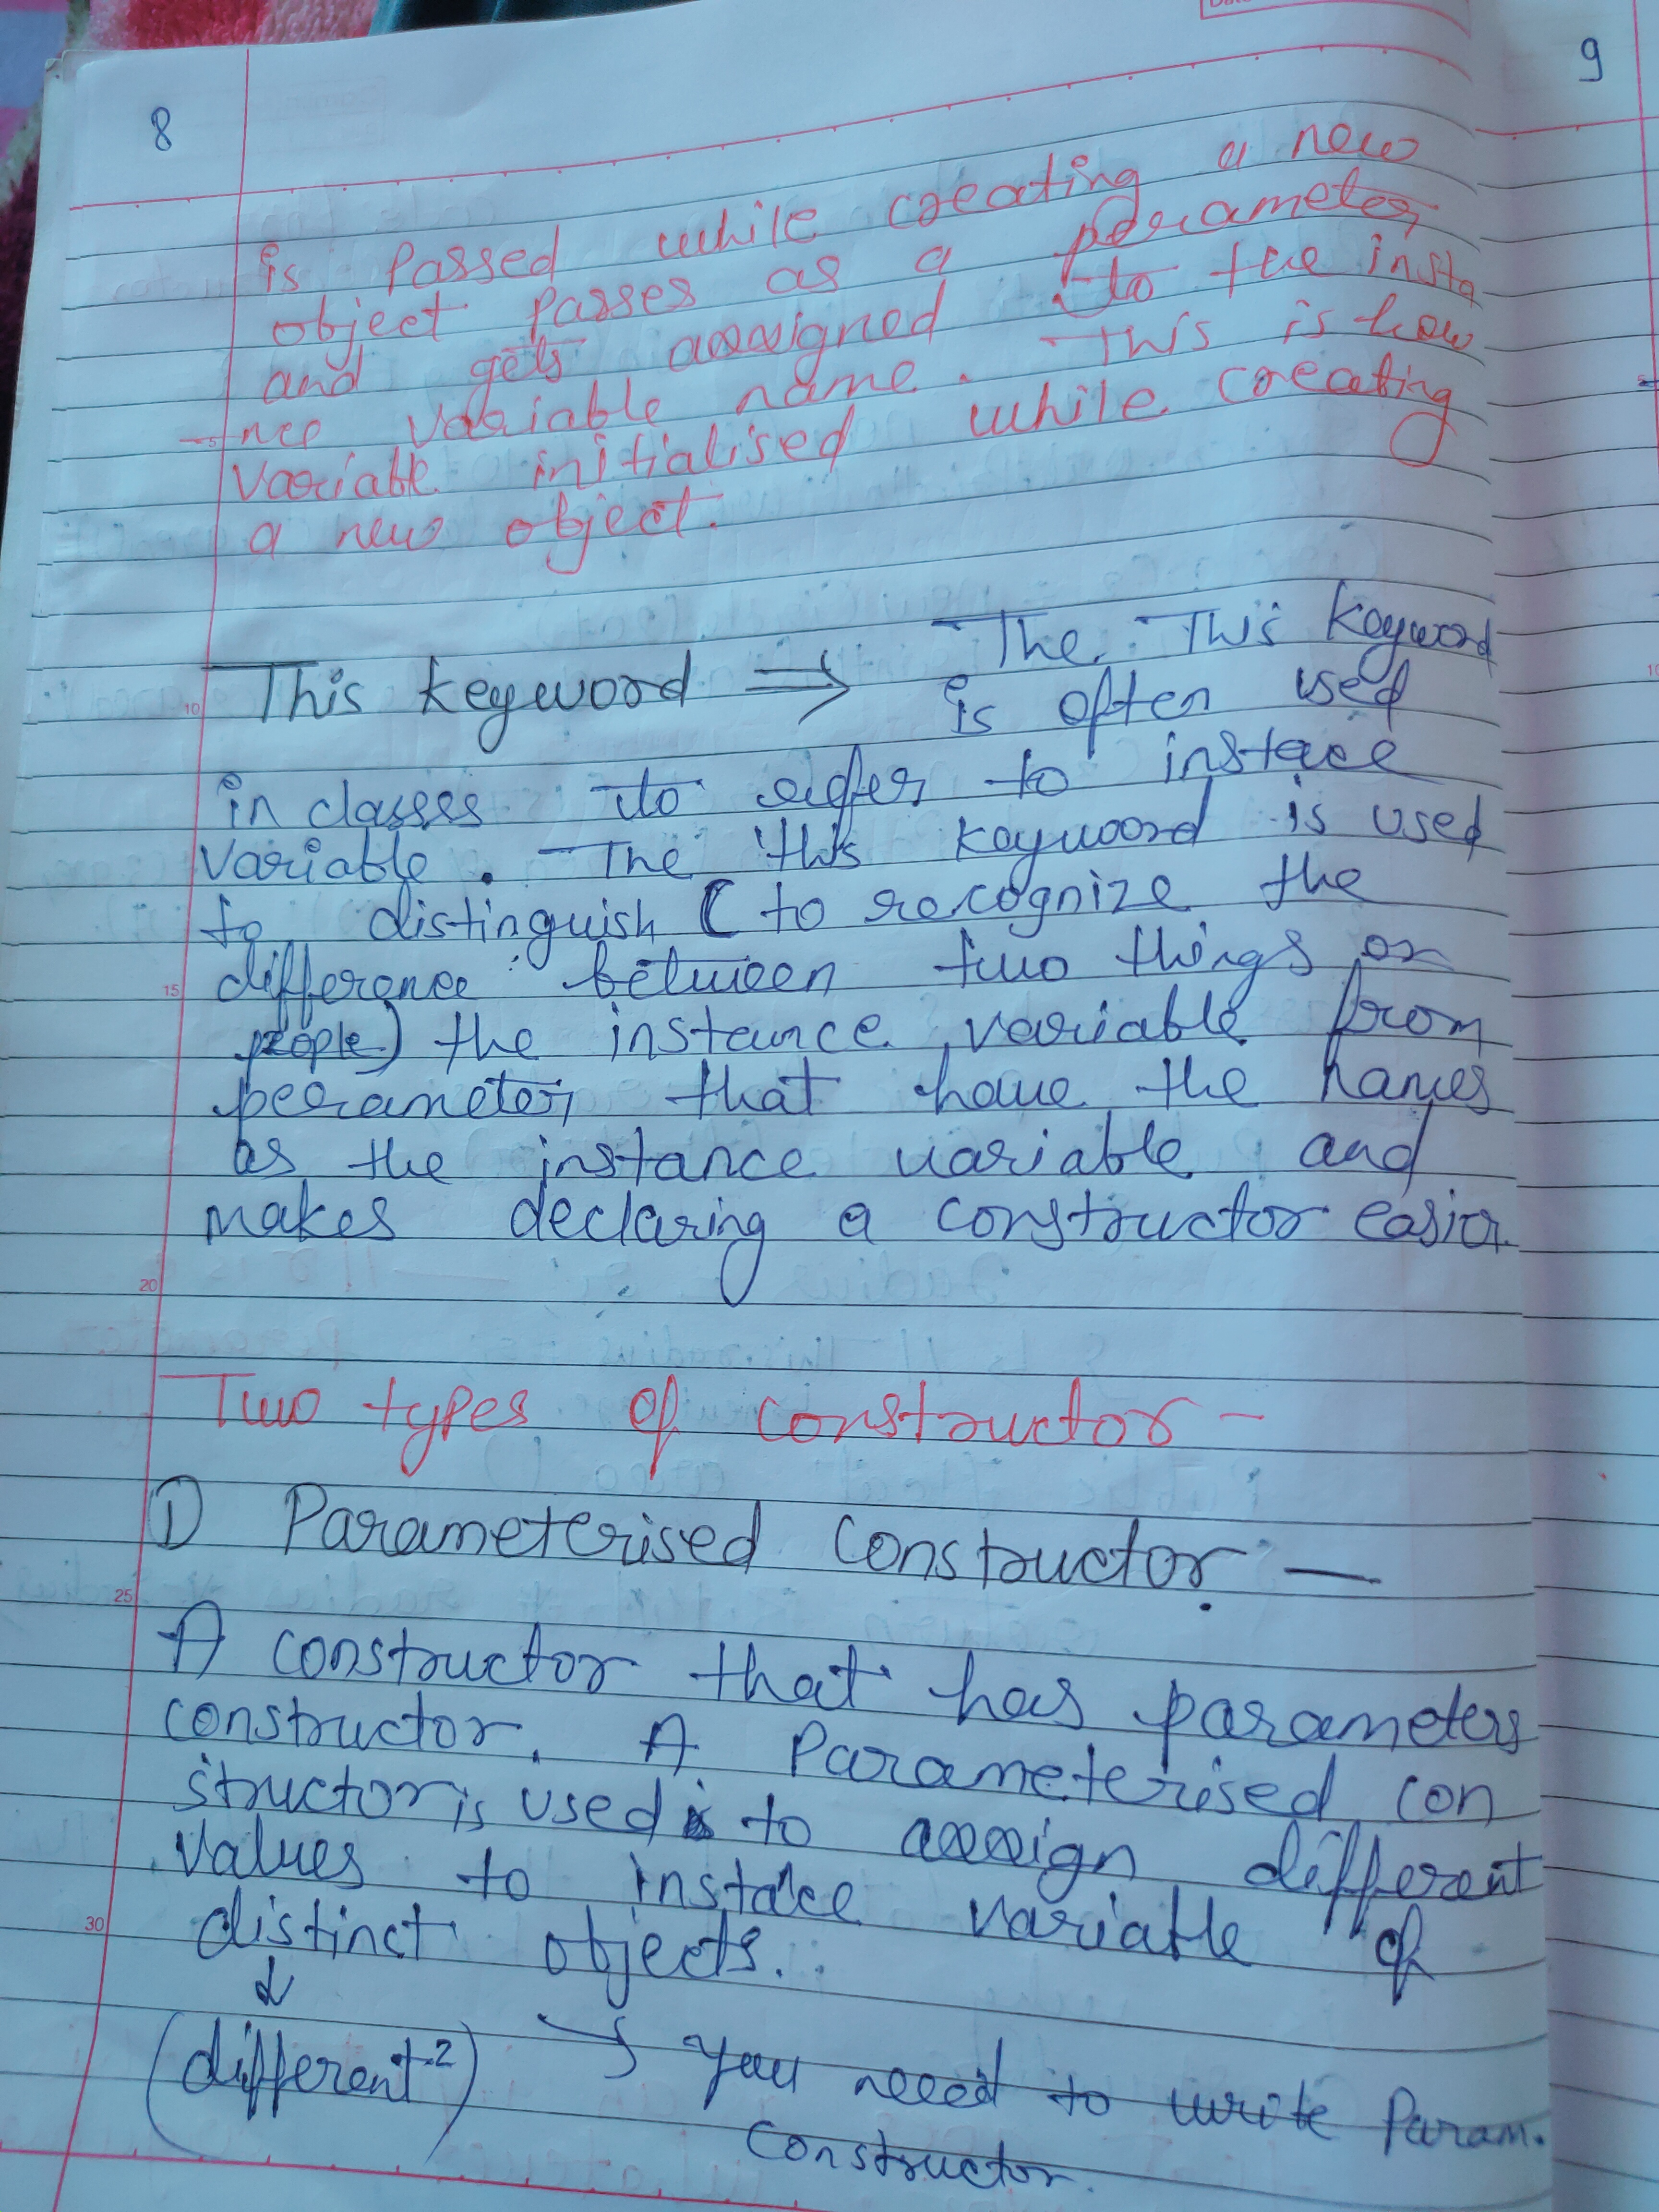 8
9
is passed while creating a new
object passes as a perameter,
and gets asssigned to the insta
nce variable name. This is how
variable initialised while creating
a new object.
This keyword ⇒ The This keyword
is often used
in classes to refer to instace
variable. The this keyword is used
to distinguish (to recognize the
difference between two things or
people) the instance variable from
perameter, that have the names
as the instance variable and
makes declaring a constructor easier.
Two types of constructor -
① Parameterised Constructor —
A constructor that has parameters
constructor. A Parameterised con
structor is used to asssign different
values to instace variable of
distinct objects.
↓
(different-2) → You need to write Param.
Constructor.